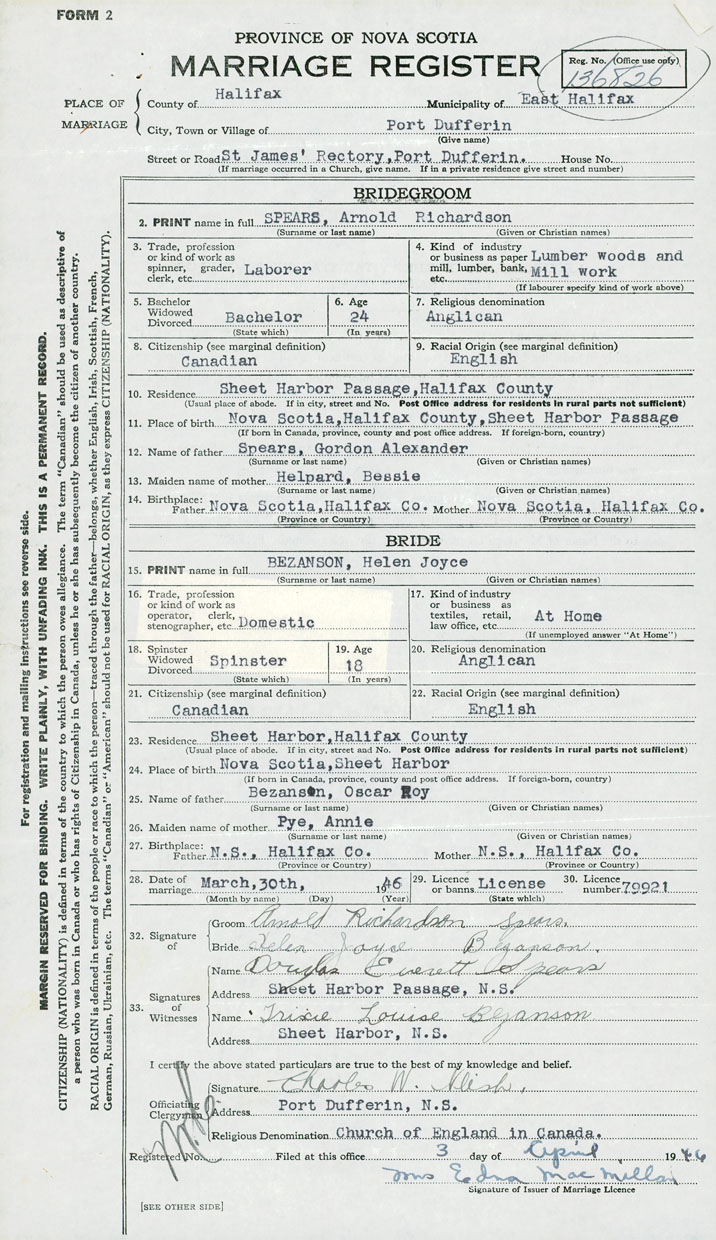 FORM 2
PROVINCE OF NOVA SCOTIA
MARRIAGE REGISTER
Reg. No. (Office use only)
136826
PLACE OF MARRIAGE
County of Halifax Municipality of East Halifax
City, Town or Village of Port Dufferin
(Give name)
Street or Road St James' Rectory, Port Dufferin. House No.
(If marriage occurred in a Church, give name. If in a private residence give street and number)
BRIDEGROOM
2. PRINT name in full SPEARS, Arnold Richardson
(Surname or last name) (Given or Christian names)
3. Trade, profession or kind of work as spinner, grader, clerk, etc. Laborer
4. Kind of industry or business as paper mill, lumber, bank, etc. Lumber woods and Mill work
(If labourer specify kind of work above)
5. Bachelor Widowed Divorced Bachelor
(State which)
6. Age 24
(In years)
7. Religious denomination
Anglican
8. Citizenship (see marginal definition)
Canadian
9. Racial Origin (see marginal definition)
English
10. Residence Sheet Harbor Passage, Halifax County
(Usual place of abode. If in city, street and No. Post Office address for residents in rural parts not sufficient)
11. Place of birth Nova Scotia, Halifax County, Sheet Harbor Passage
(If born in Canada, province, county and post office address. If foreign-born, country)
12. Name of father Spears, Gordon Alexander
(Surname or last name) (Given or Christian names)
13. Maiden name of mother Helpard, Bessie
(Surname or last name) (Given or Christian names)
14. Birthplace: Father Nova Scotia, Halifax Co. Mother Nova Scotia, Halifax Co.
(Province or Country) (Province or Country)
BRIDE
15. PRINT name in full BEZANSON, Helen Joyce
(Surname or last name) (Given or Christian names)
16. Trade, profession or kind of work as operator, clerk, stenographer, etc. Domestic
17. Kind of industry or business as textiles, retail, law office, etc. At Home
(If unemployed answer "At Home")
18. Spinster Widowed Divorced Spinster
(State which)
19. Age 18
(In years)
20. Religious denomination
Anglican
21. Citizenship (see marginal definition)
Canadian
22. Racial Origin (see marginal definition)
English
23. Residence Sheet Harbor, Halifax County
(Usual place of abode. If in city, street and No. Post Office address for residents in rural parts not sufficient)
24. Place of birth Nova Scotia, Sheet Harbor
(If born in Canada, province, county and post office address. If foreign-born, country)
25. Name of father Bezanson, Oscar Roy
(Surname or last name) (Given or Christian names)
26. Maiden name of mother Pye, Annie
(Surname or last name) (Given or Christian names)
27. Birthplace: Father N.S., Halifax Co. Mother N.S., Halifax Co.
(Province or Country) (Province or Country)
28. Date of marriage March, 30th, 1946
(Month by name) (Day) (Year)
29. Licence or banns License
(State which)
30. Licence number 79921
32. Signature of
Groom Arnold Richardson Spears.
Bride Helen Joyce Bezanson.
33. Signatures of Witnesses
Name Douglas Everett Spears
Address Sheet Harbor Passage, N.S.
Name Trixie Louise Bezanson
Address Sheet Harbor, N.S.
I certify the above stated particulars are true to the best of my knowledge and belief.
Officiating Clergyman
Signature Charles W.
Address Port Dufferin, N.S.
Religious Denomination Church of England in Canada.
Registered No. Filed at this office 3 day of April 1946
Mrs Edna MacMillan
Signature of Issuer of Marriage Licence
[SEE OTHER SIDE]
For registration and mailing instructions see reverse side.
MARGIN RESERVED FOR BINDING. WRITE PLAINLY, WITH UNFADING INK. THIS IS A PERMANENT RECORD.
CITIZENSHIP (NATIONALITY) is defined in terms of the country to which the person owes allegiance. The term "Canadian" should be used as descriptive of
a person who was born in Canada or who has rights of Citizenship in Canada, unless he or she has subsequently become the citizen of another country.
RACIAL ORIGIN is defined in terms of the people or race to which the person—traced through the father—belongs, whether English, Irish, Scottish, French,
German, Russian, Ukrainian, etc. The terms "Canadian" or "American" should not be used for RACIAL ORIGIN, as they express CITIZENSHIP (NATIONALITY).